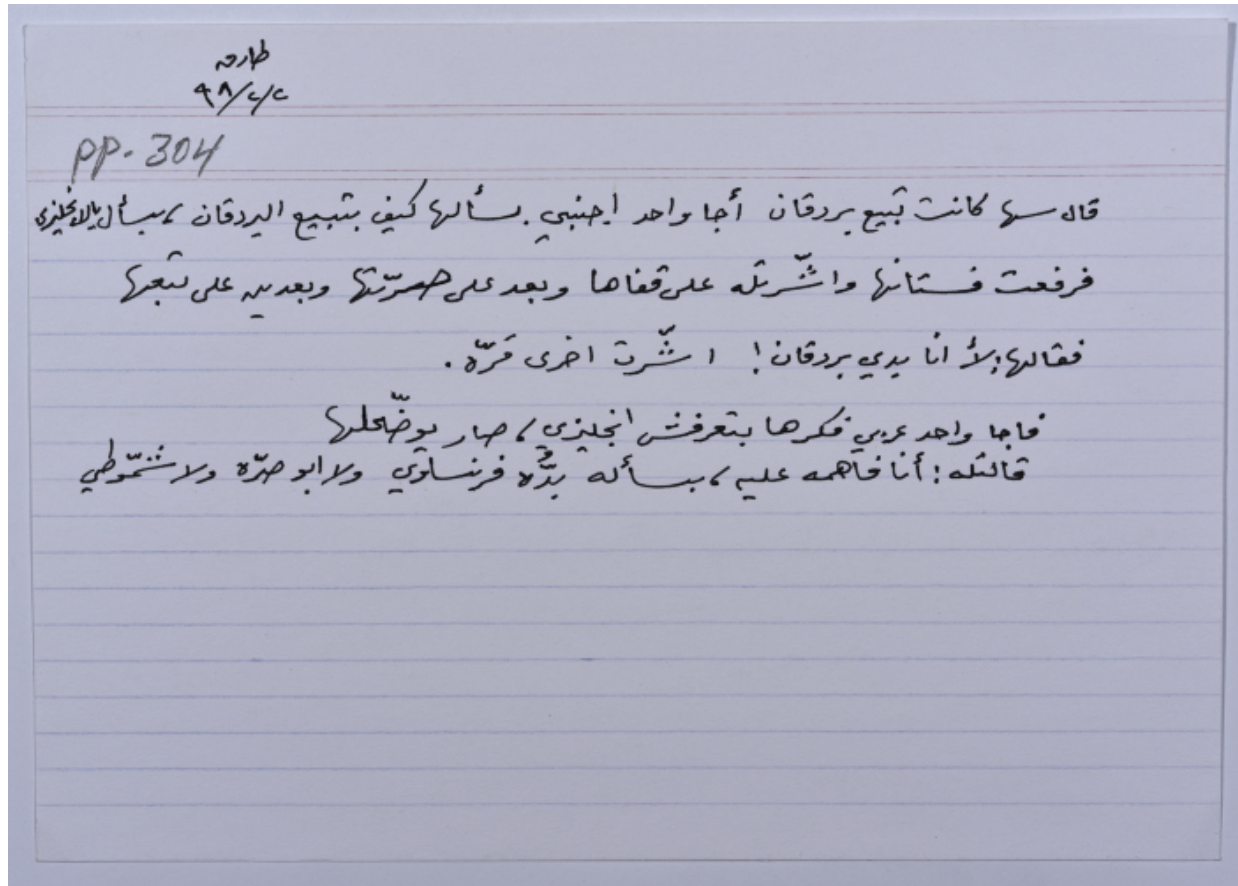 طارق
٩٨/٢/٢
pp. 304
قال سها كانت تبيع بردقان أجا واحد اجنبي بسألها كيف بتبيع البردقان، بسأل بالانجليزي
فرفعت فستانها واشّرتله على قفاها وبعد على صرّتها وبعدين على تبعها
فقالها: لأ أنا بدي بردقان! اشّرت اخرى مرّه.
فاجا واحد عربي فكرها بتعرفش انجليزي، صار يوضّحلها
قالتله: أنا فاهمه عليه، بسأله بدُّه فرنساوي ولا ابو صرّه ولا شمّوطي